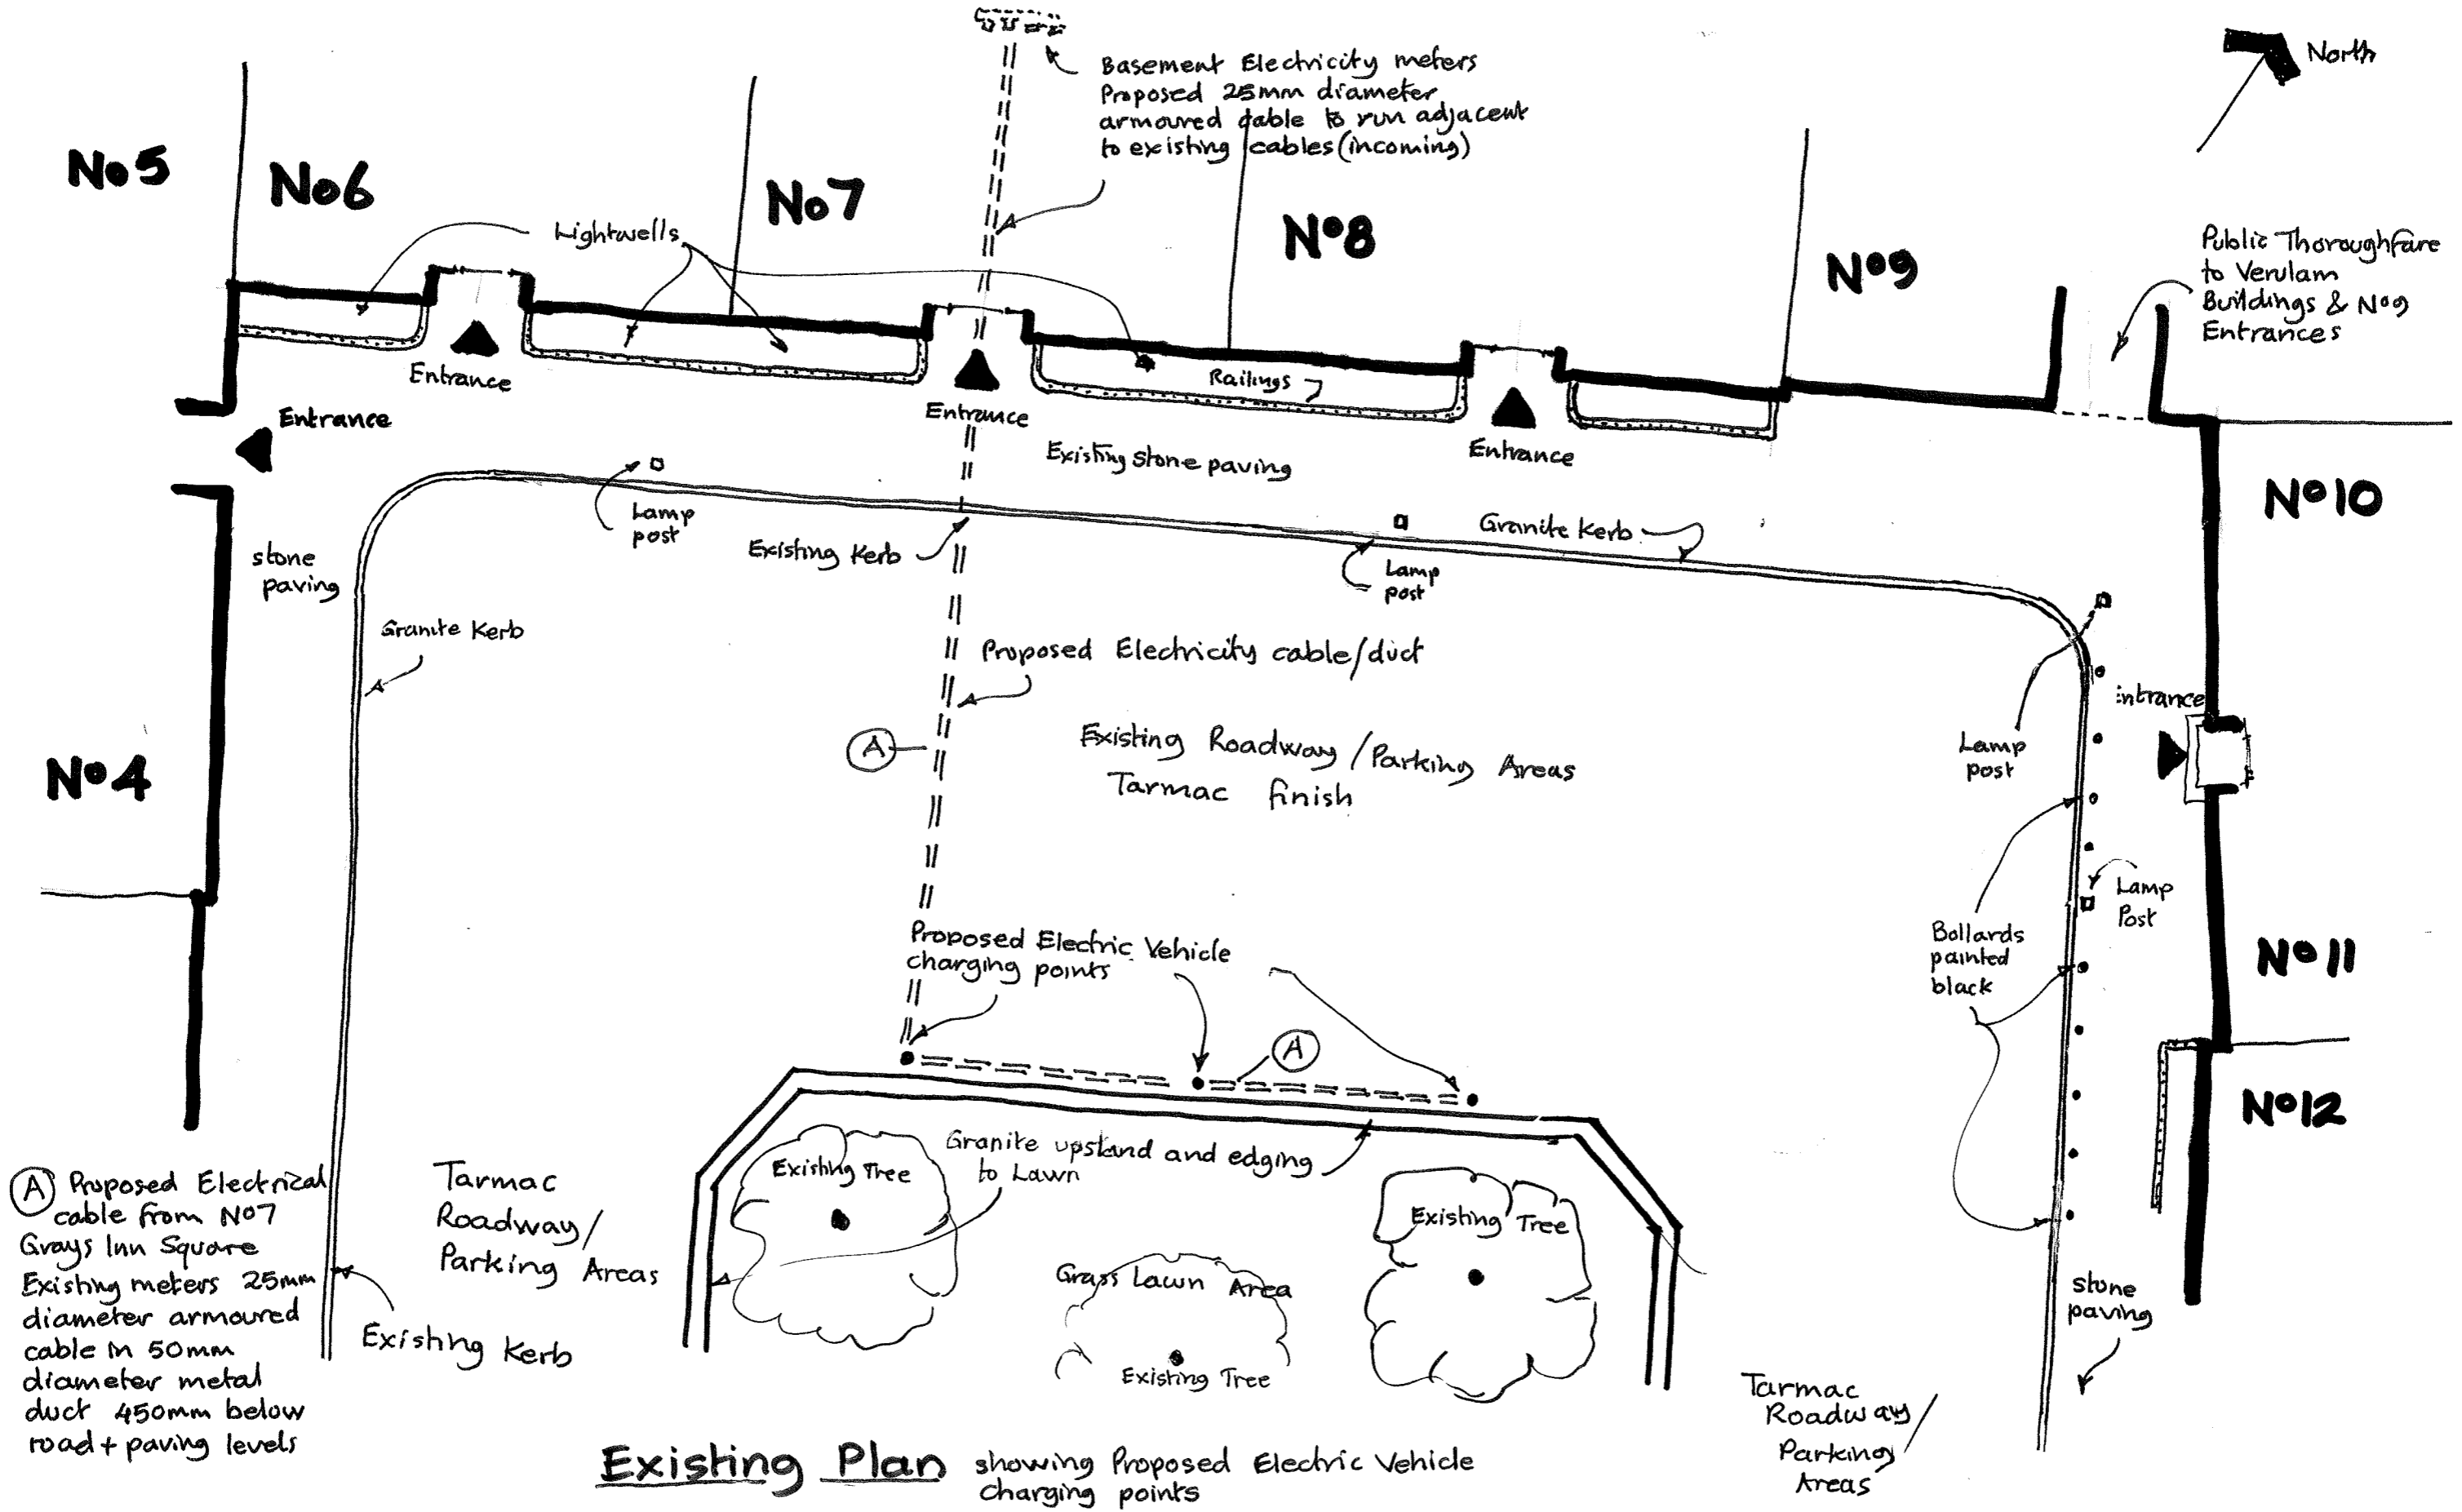 Basement Electricity meters
Proposed 25mm diameter
armoured cable to run adjacent
to existing cables (incoming)
North
No5
No6
No7
No8
No9
Lightwells
Public Thoroughfare
to Verulam
Buildings & No9
Entrances
Railings
Entrance
Entrance
Entrance
Entrance
Existing stone paving
No10
Lamp
post
Existing Kerb
Granite Kerb
Lamp
post
stone
paving
Granite Kerb
Proposed Electricity cable/duct
Entrance
A
Existing Roadway/Parking Areas
Tarmac finish
Lamp
post
No4
Lamp
Post
Bollards
painted
black
No11
Proposed Electric Vehicle
charging points
A
No12
Granite upstand and edging
to Lawn
Existing Tree
Existing Tree
Grass Lawn Area
Existing Tree
Tarmac
Roadway/
Parking Areas
A Proposed Electrical
cable from No7
Grays Inn Square
Existing meters 25mm
diameter armoured
cable in 50mm
diameter metal
duct 450mm below
road + paving levels
Existing Kerb
stone
paving
Tarmac
Roadway/
Parking
Areas
Existing Plan showing Proposed Electric Vehicle
charging points